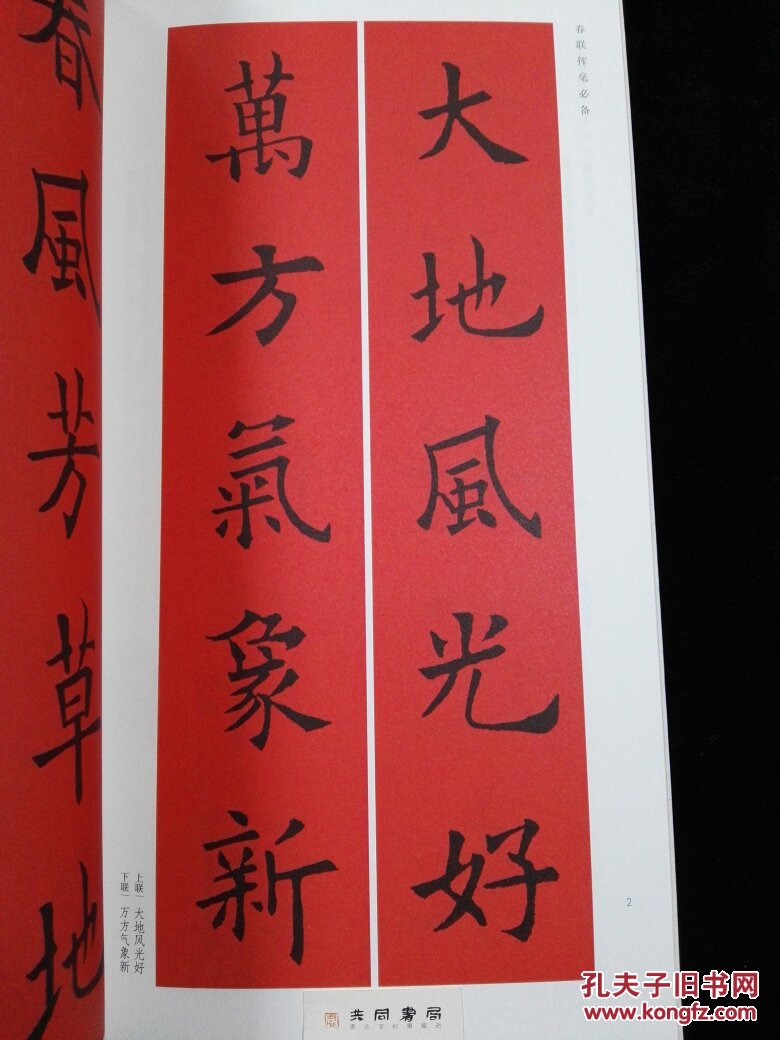 春联挥毫必备
大地風光好
萬方氣象新
上联 大地风光好
下联 万方气象新
春風芳草地
2
共同書局
孔夫子旧书网
www.kongfz.com